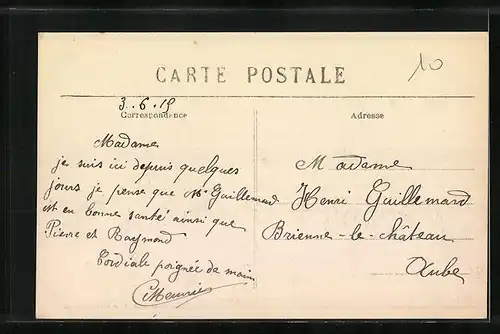 10
CARTE POSTALE
3.6.19
Correspondance
Adresse
Madame
je suis ici depuis quelques
jours je pense que Mr Guillemard
est en bonne santé ainsi que
Pierre et Raymond
Cordiale poignée de main
Madame
Henri Guillemard
Brienne-le-château
Aube